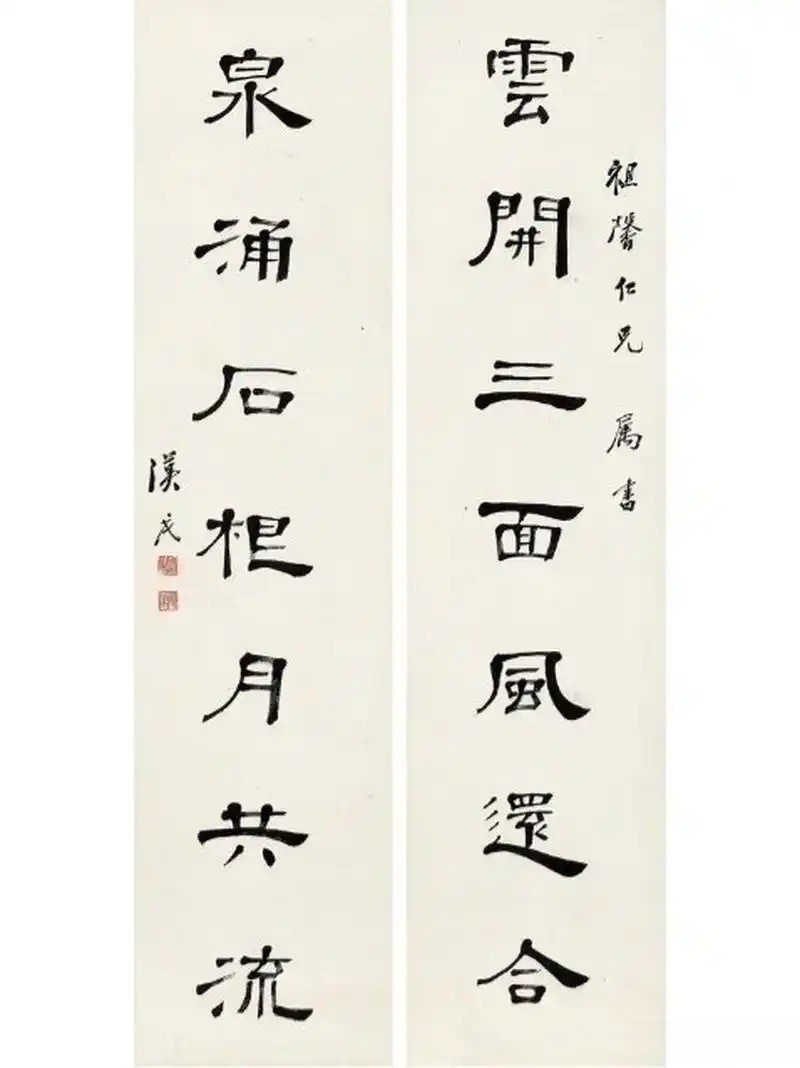 祖馨仁兄 属書
雲開三面風還合
泉涌石根月共流
漢民